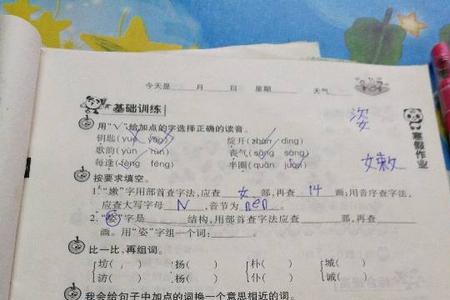 今天是 月 日 星期 天气
基础训练
姿
寒假作业
用“√”给加点的字选择正确的读音。
钥匙(yuè yào) 绽开(zhàn dìng)
歌韵(yùn yūn) 丧气(sāng sàng)
每逢(féng fēng) 半圆(quān juān)
女敕
按要求填空。
1.“嫩”字用部首查字法,应查 女 部,再查 14 画;用音序查字法,
应查大写字母 N ,音节为 nèn 。
2.“姿”字是 结构,用部首查字法应查 部,再查
画。用“姿”字组一个词:
比一比,再组词。
坊( ) 杨( ) 朴( ) 城( )
访( ) 扬( ) 仆( ) 诚( )
我会给句子中加点的词换一个意思相近的词。